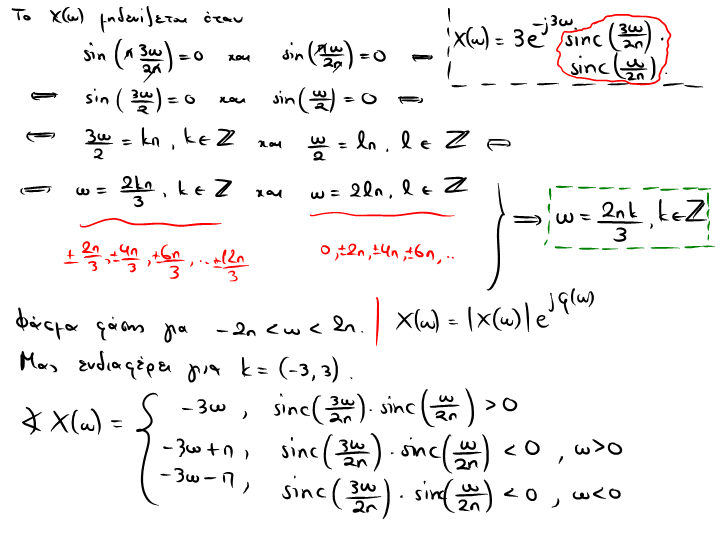 Το X(ω) μηδενίζεται όταν
X(ω) = 3e^{-j3ω} sinc(3ω/2π) ·
sinc(ω/2π).
sin(π 3ω/2π) = 0 και sin(πω/2π) = 0 ⇔
⇔ sin(3ω/2) = 0 και sin(ω/2) = 0 ⇔
⇔ 3ω/2 = kπ, k ∈ ℤ και ω/2 = lπ, l ∈ ℤ ⇔
⇔ ω = 2kπ/3, k ∈ ℤ και ω = 2lπ, l ∈ ℤ
⇒ ω = 2πk/3, k ∈ ℤ
± 2π/3, ± 4π/3, ± 6π/3, .. ± 12π/3
0, ±2π, ±4π, ±6π, ..
Φάσμα φάσης για -2π < ω < 2π. | X(ω) = |X(ω)| e^{jφ(ω)}
Μας ενδιαφέρει για k = (-3, 3).
∢ X(ω) = { -3ω, sinc(3ω/2π) · sinc(ω/2π) > 0
-3ω + π, sinc(3ω/2π) · sinc(ω/2π) < 0, ω > 0
-3ω - π, sinc(3ω/2π) · sinc(ω/2π) < 0, ω < 0